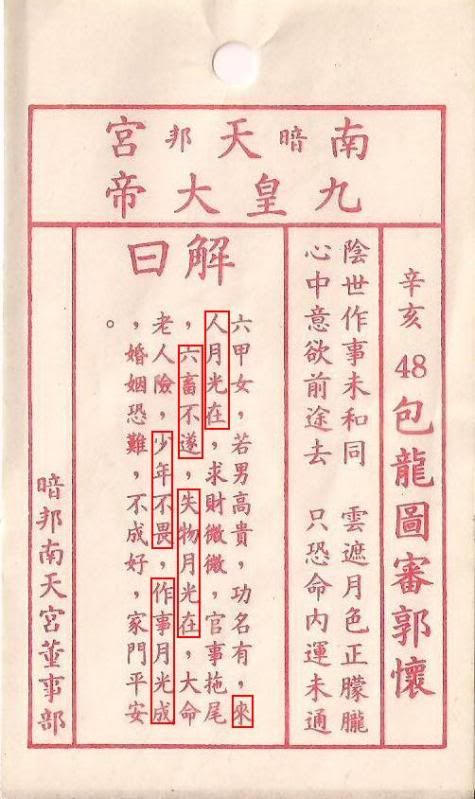 南暗天邦宮
九皇大帝
辛亥 48 包龍圖審郭懷
陰世作事未和同 雲遮月色正朦朧
心中意欲前途去 只恐命內運未通
解曰
六甲女，若男高貴，功名有，來
人月光在，求財微微，官事拖尾
，六畜不遂，失物月光在，大命
老人險，少年不畏，作事月光成
，婚姻恐難，不成好，家門平安
。
暗邦南天宮董事部